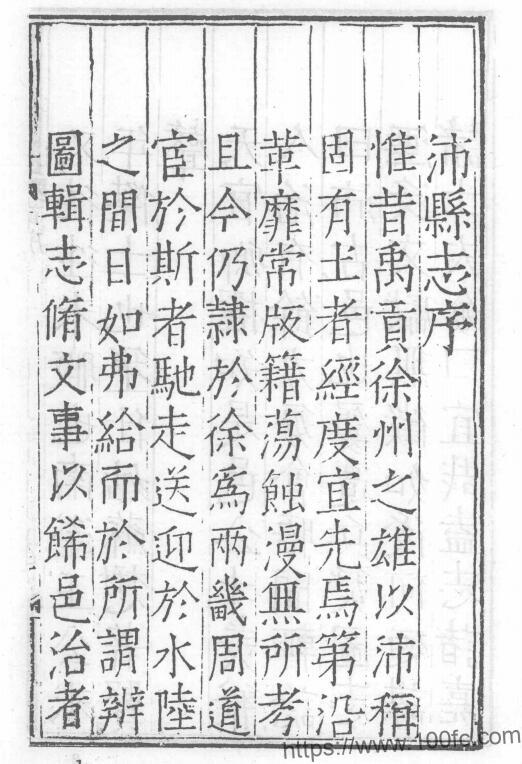 沛縣志序
惟昔禹貢徐州之雄以沛稱
固有土者經度宜先焉第沿
革靡常版籍蕩蝕漫無所考
且今仍隸於徐爲兩畿周道
宦於斯者馳走送迎於水陸
之間日如弗給而於所謂辨
圖輯志脩文事以餙邑治者
https://www.100fc.com